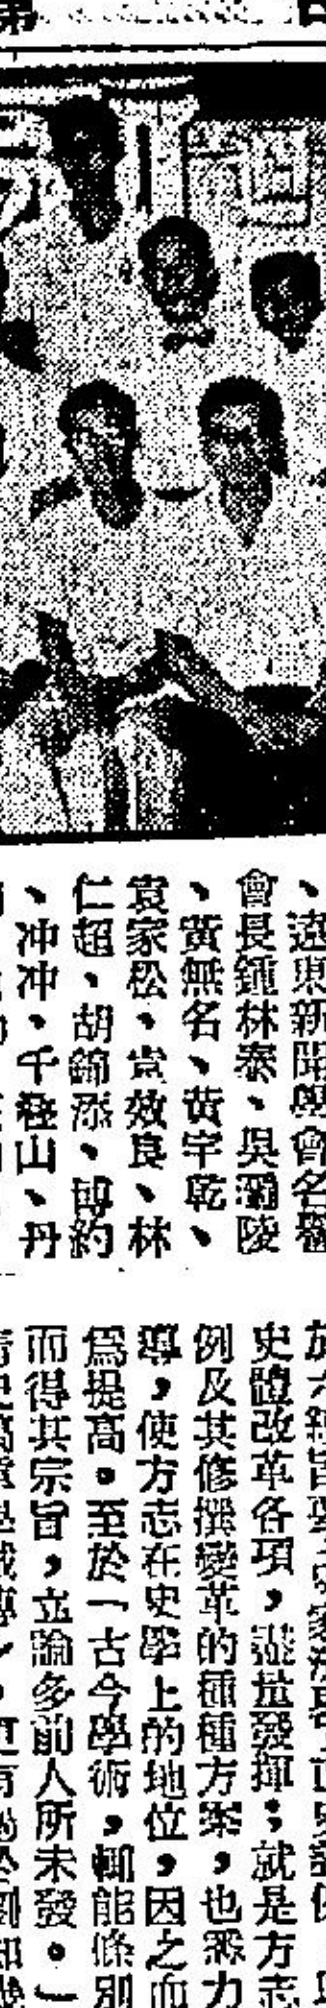 、遠東新聞學會名譽
會長鍾林泰、吳灞陵
、黃無名、黃宇乾、
袁家松、袁效良、林
仁超、胡錦添、博約
、冲冲、千叠山、丹
史體改革各項，儘量發揮；就是方志
例及其修撰變革的種種方案，也悉力
導，使方志在史學上的地位，因之而
爲提高。至於「古今學術，輒能條別
而得其宗旨，立論多前人所未發。」